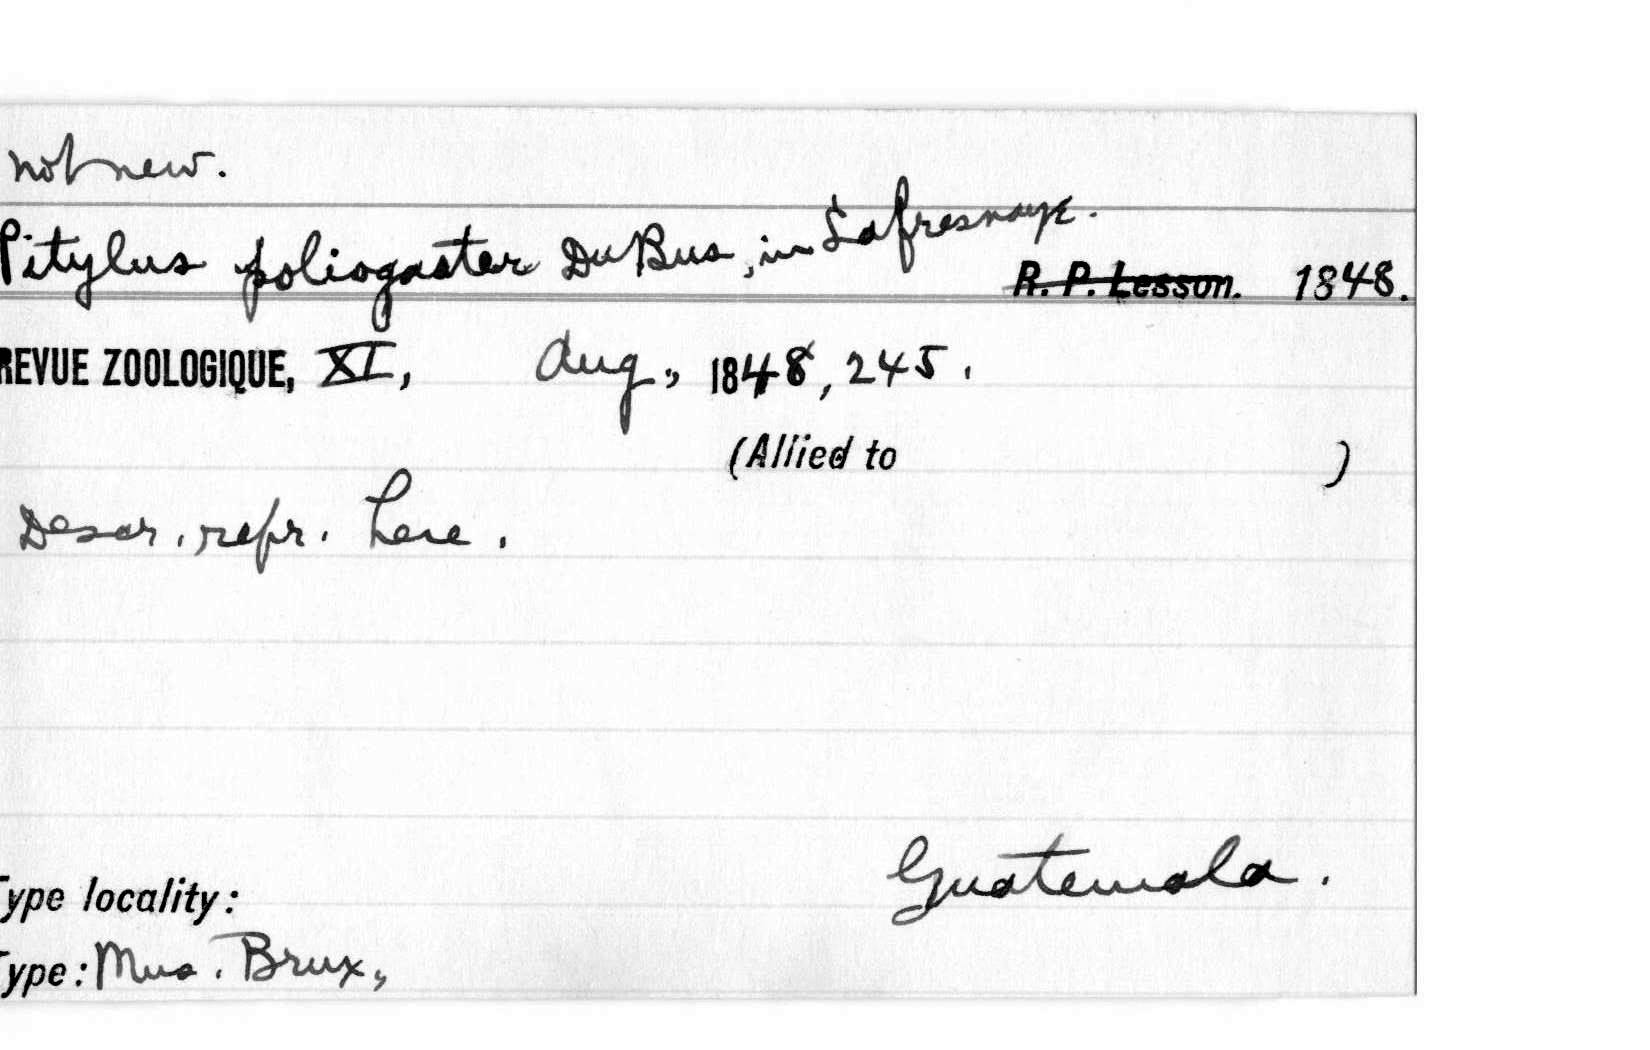 not new.
Pitylus poliogaster DuBus, in Lafresnaye.
R. P. Lesson. 1848.
REVUE ZOOLOGIQUE, XI, Aug., 1848, 245.
(Allied to )
Descr. repr. here.
Guatemala.
Type locality:
Type: Mus. Brux.,